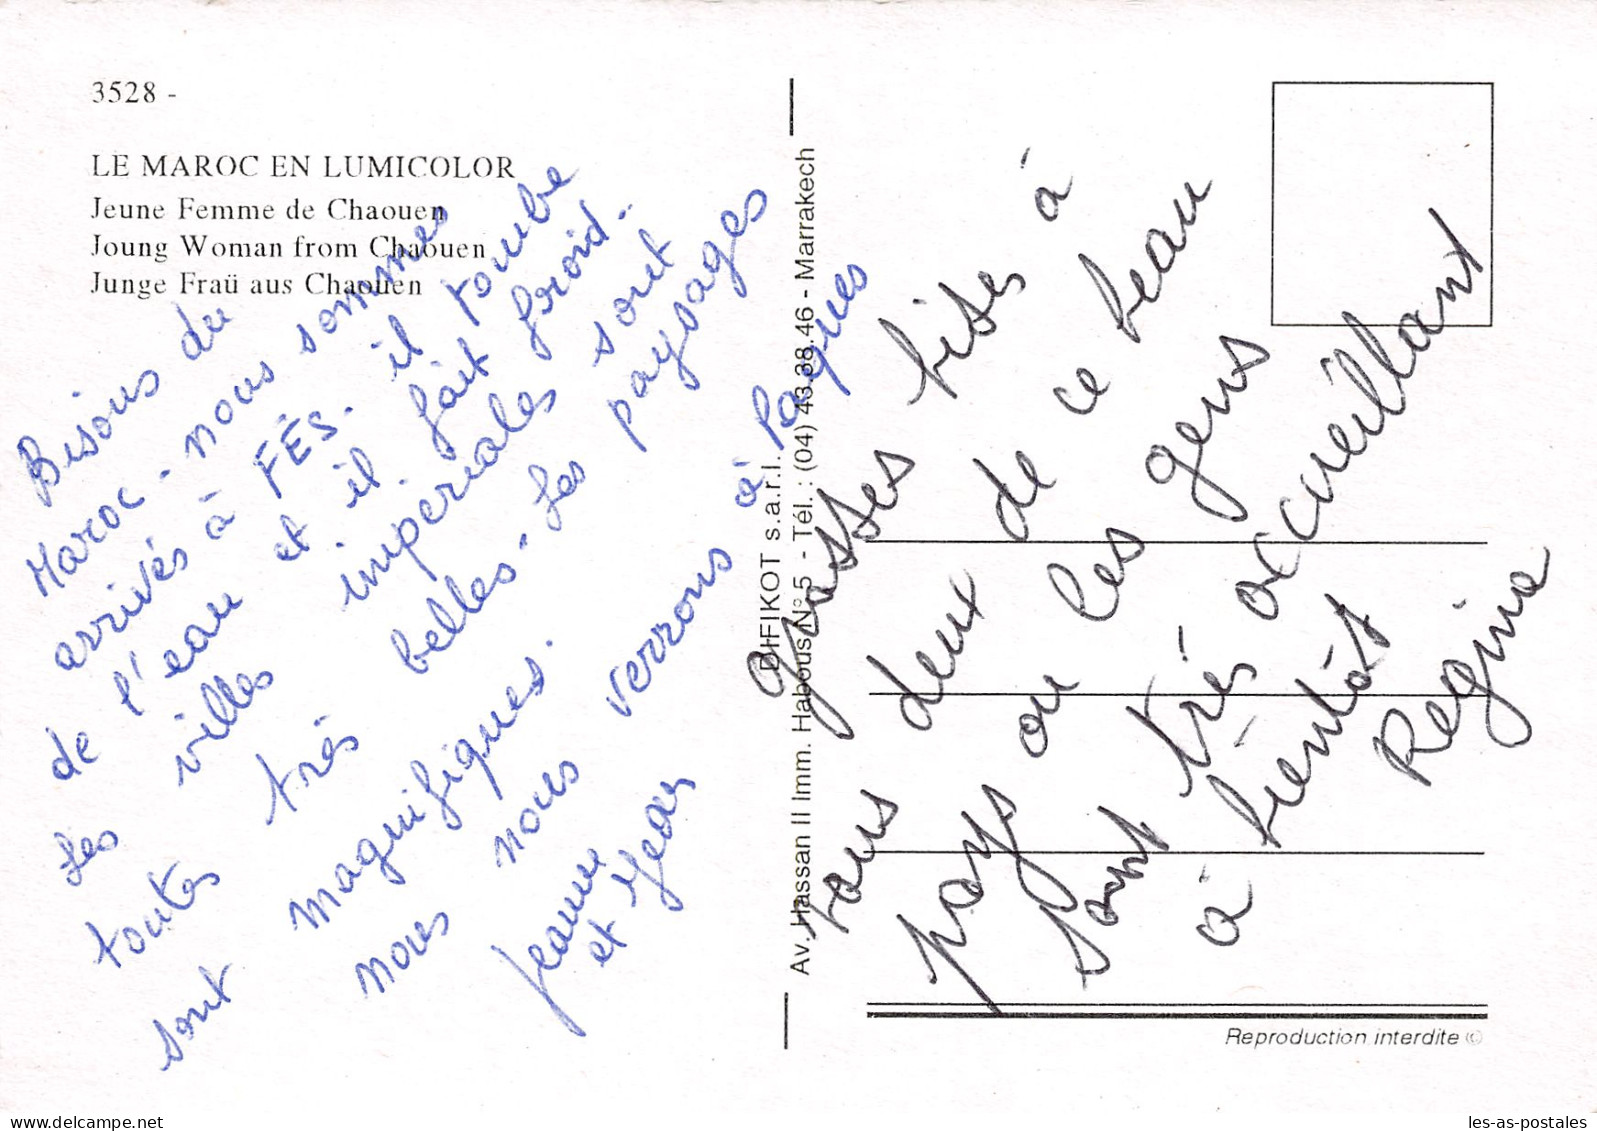 3528 -
LE MAROC EN LUMICOLOR
Jeune Femme de Chaouen
Joung Woman from Chaouen
Junge Fraü aus Chaouen
Bisous du
Maroc - nous sommes
arrivés à FÉS. il tombe
de l'eau et il fait froid..
Les villes impériales sont
toutes très belles - Les paysages
sont magnifiques.
nous nous verrons à Paques
Jeanne
et Jean
DIFIKOT s.a.r.l.
Av. Hassan II Imm. Habous N° 5 - Tél. : (04) 43.38.46 - Marrakech
Grosses bises à
tous deux de ce beau
pays ou les gens
sont très accueillant
à bientôt
Regine
Reproduction interdite ©
les-as-postales